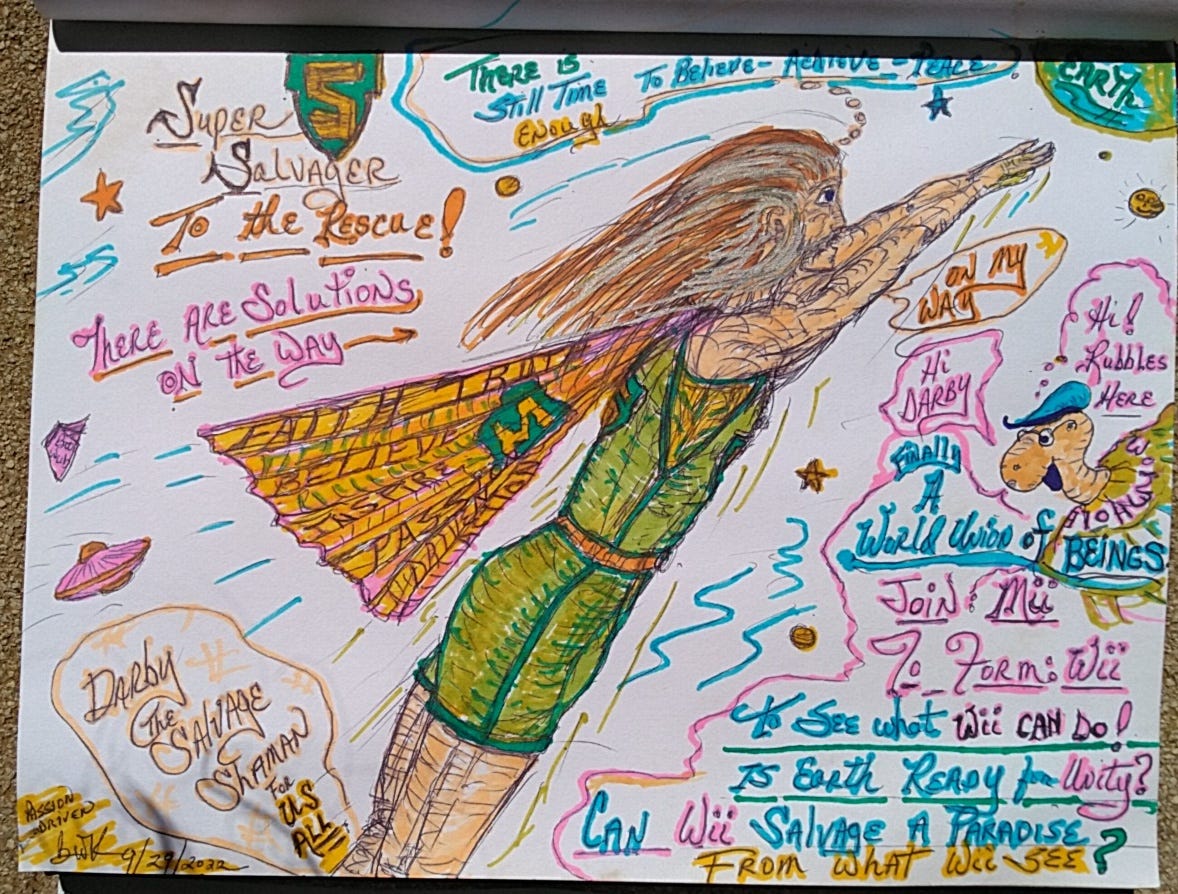 S
SUPER
SALVAGER
TO the RESCUE!
THERE ARE SOLUTIONS
ON THE WAY
THERE IS
Still TIME
ENOUGH
TO BELIEVE - ACHIEVE - PEACE
EARTH
ON MY
WAY
Hi!
Rubbles
HERE
Hi
DARBY
FINALLY
A
WORLD UNION of
BEINGS
JOIN: Mii
To FORM: Wii
To SEE what Wii CAN DO!
IS EARTH READY for Unity?
CAN Wii SALVAGE A PARADISE
FROM WHAT Wii SEE?
M
FAITH TRU
BELIEVE
INSPIRE
PASSION
DARBY
THE
SALVAGE
SHAMAN
FOR
US
ALL
PASSION
DRIVEN
BWK 9/29/2022